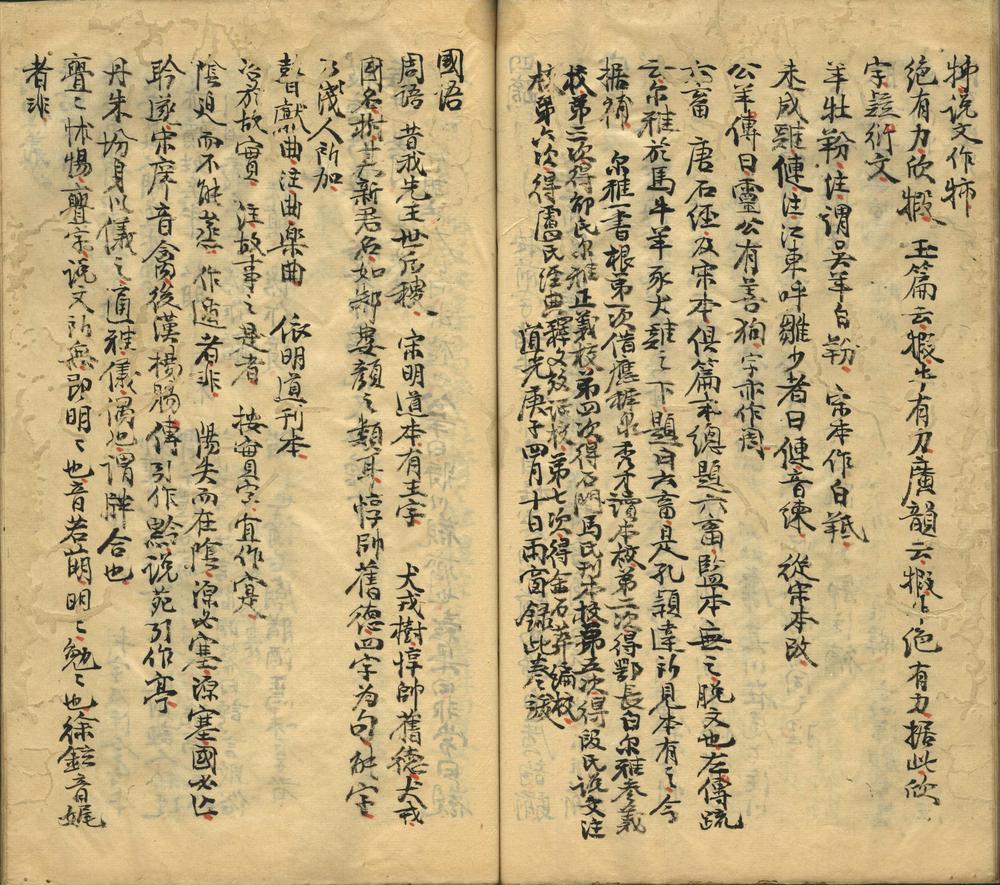 犻说文作㹀
绝有力欣犌　玉篇云犌牛有力廣韻云犌牛絕有力据此欣
字疑衍文
羊牡羒注謂吴羊白羒　宋本作白羝
未成雞僆注江東呼雛少者曰僆音練　從宋本改
公羊傳曰靈公有善狗字亦作周
六畜　唐石经及宋本俱篇末總題六畜監本無之脱文也左傳疏
云尔雅於馬牛羊豕犬雞之下題曰六畜是孔穎達所見本有之今
据補　尔雅一書根第一次借應秀才讀本校第二次得鄂長白尔雅参義
校第三次得邵氏尔雅正義校第四次得石門馬氏刊本校第五次得段氏说文注
校第六次得盧氏经典釋文攷证校第七次得金石萃编校
道光庚子四月十日雨窗録此卷
國语
周語　昔我先王世后稷　宋明道本有王字　犬戎樹惇帥舊德犬戎
國名樹其新君名如郝婁顏之類耳惇帥舊德四字為句能字
乃淺人所加
瞽献曲注曲樂曲　依明道刊本
咨於故實　注故事之是者　按實字宜作寔
陰迫而不能烝　作遁者非　陽失而在陰源必塞源塞國必亡
聆遂宋庠音禽後漢楊賜傳引作黔说苑引作亭
丹朱馮身以儀之通雅儀偶也謂牉合也
亹亹怵惕亹字说文所無即明明也音若萌明明勉勉也徐鉉音娓
者非